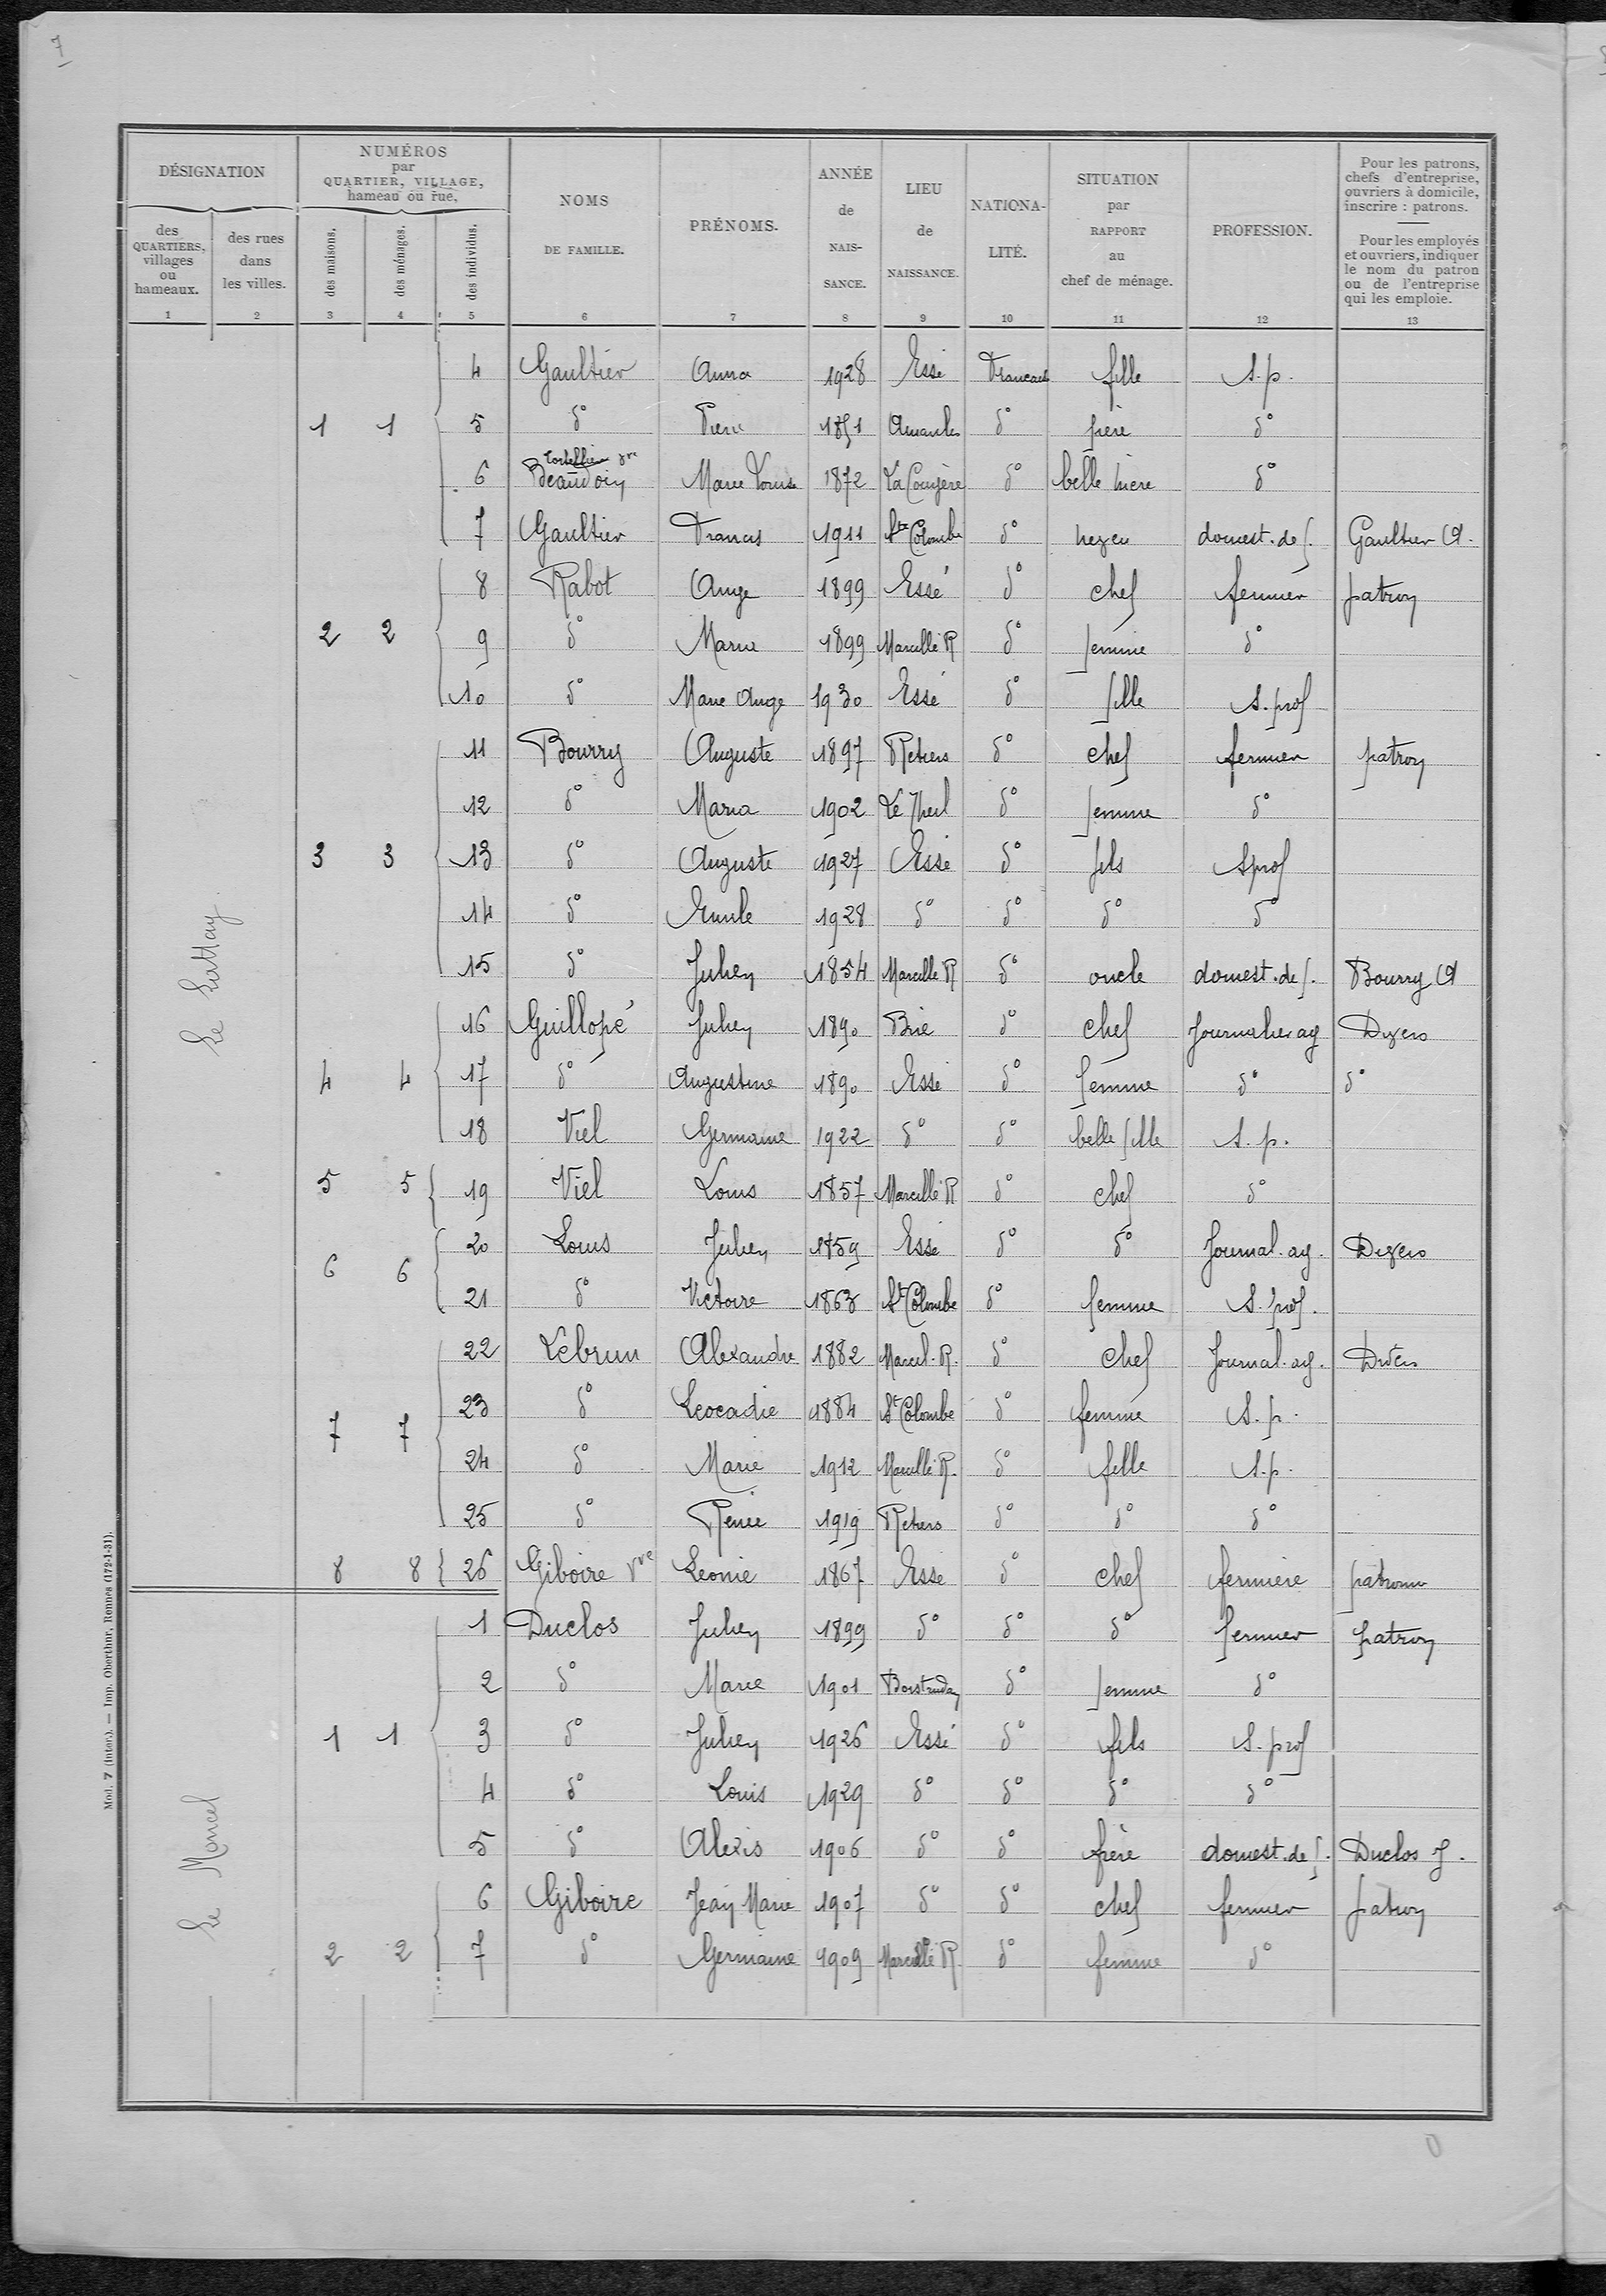 7
DÉSIGNATION
des QUARTIERS, villages ou hameaux. 1
des rues dans les villes. 2
NUMÉROS par QUARTIER, VILLAGE, hameau ou rue.
des maisons. 3
des ménages. 4
des individus. 5
NOMS DE FAMILLE. 6
PRÉNOMS. 7
ANNÉE de NAIS-SANCE. 8
LIEU de NAISSANCE. 9
NATIONA-LITÉ. 10
SITUATION par RAPPORT au chef de ménage. 11
PROFESSION. 12
Pour les patrons, chefs d'entreprise, ouvriers à domicile, inscrire : patrons.
Pour les employés et ouvriers, indiquer le nom du patron ou de l'entreprise qui les emploie. 13
4 Gaultier Anna 1928 Essé fille S. p.
1 1 5 d° 1851 Amanlis d° d°
6 Vve Beaudoin Marie Louise 1872 La Couyère d° belle mère d°
7 Gaultier Francis 1911 Ste Colombe d° neveu domest. de f. Gaultier A.
8 Rabot Ange 1899 Essé d° chef fermier patron
2 2 9 d° Maria 1899 Marcillé R d° femme d°
10 d° Marie Ange 1930 Essé d° fille S. prof
11 Bourry Auguste 1897 Retiers d° chef fermier patron
12 d° Maria 1902 Le Theil d° femme d°
3 3 13 d° Auguste 1927 Essé d° fils S prof
14 d° Emile 1928 d° d° d° d°
15 d° Julien 1854 Marcillé R d° oncle domest. de f. Bourry A
16 Guillopé Julien 1890 Brie d° chef Journalier ag Divers
4 4 17 d° Augustine 1890 Essé d° femme d° d°
18 Viel Germaine 1922 d° d° belle fille S. p.
5 5 19 Viel Louis 1857 Marcillé R d° chef d°
20 Louis Julien 1859 Essé d° d° Journal. ag. Divers
6 6 21 d° Victoire 1863 Ste Colombe d° femme S. prof.
22 Lebrun Alexandre 1882 Marcil. R. d° chef Journal. ag. Divers
23 d° Leocadie 1884 Ste Colombe d° femme S. p.
7 7 24 d° Marie 1912 Marcillé R. d° fille S. p.
25 d° Renée 1919 Retiers d° d° d°
8 8 26 Giboire Vve Leonie 1867 Essé d° chef fermière patronne
1 Duclos Julien 1899 d° d° d° fermier patron
2 d° Marie 1901 Boistrudan d° femme d°
1 1 3 d° Julien 1926 Essé d° fils S. prof
4 d° Louis 1929 d° d° d° d°
5 d° Alexis 1906 d° d° frère domest. de f. Duclos J.
6 Giboire Jean Marie 1907 d° d° chef fermier patron
2 2 7 d° Germaine 1909 Marcillé R. d° femme d°
Le Moncel
Mod. 7 (Inter.). — Imp. Oberthur, Rennes (172-1-31).